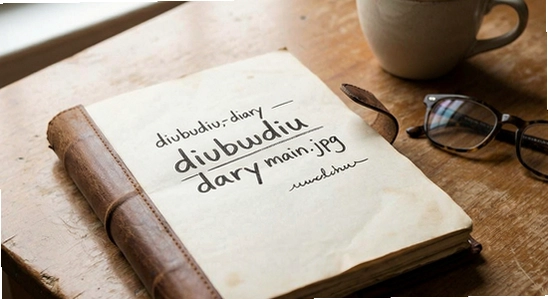 diubudiu,-diary —
diubudiu
dary main.jpg